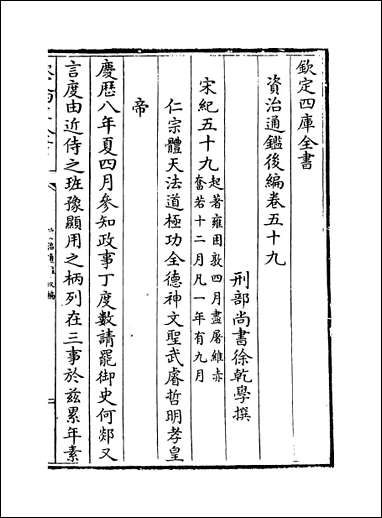 欽定四庫全書
資治通鑑後編卷五十九
刑部尚書徐乾學撰
宋紀五十九
起著雍困敦四月盡屠維赤
奮若十二月凡一年有九月
仁宗體天法道極功全德神文聖武睿哲明孝皇
帝
慶歷八年夏四月參知政事丁度數請罷御史何郯又
言度由近侍之班豫顯用之柄列在三事於兹累年素